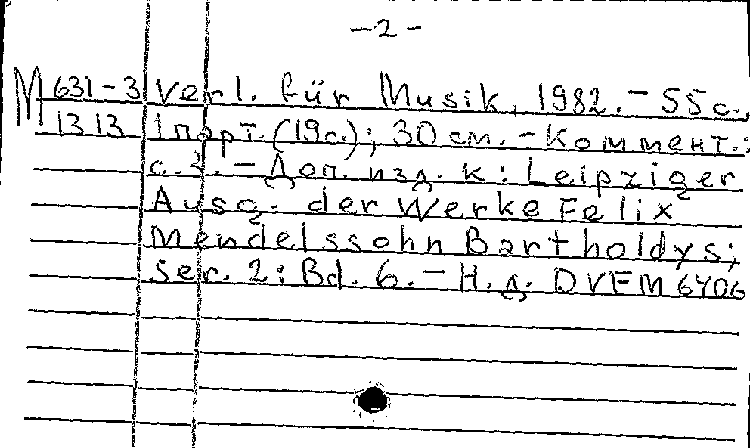 -2-
М 631-3 Verl. für Musik, 1982. - 55 с.,
1313 1 парт. (19с.); 30 см. - Коммент.:
с. 3. - Доп. изд. к: Leipziger
Ausg. der Werke Felix
Mendelssohn Bartholdys;
Ser. 2: Bd. 6. - Н.д. DVFM 6406